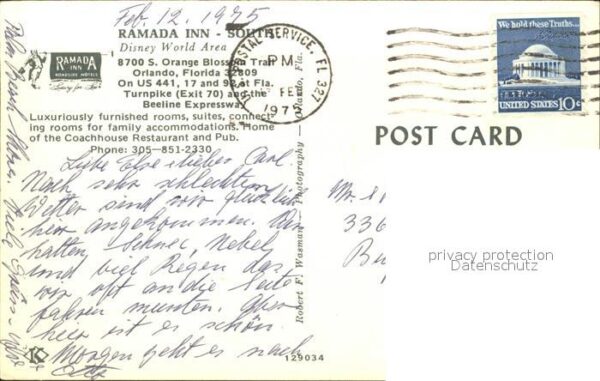 Feb. 12, 1975
RAMADA INN - SOUTH
Disney World Area
RAMADA
INN
ROADSIDE HOTELS
8700 S. Orange Blossom Trail
Orlando, Florida 32809
On US 441, 17 and 92 at Fla.
Turnpike (Exit 70) and the
Beeline Expressway
Luxuriously furnished rooms, suites, connect-
ing rooms for family accommodations. Home
of the Coachhouse Restaurant and Pub.
Phone: 305-851-2330
Liebe Else + lieber Carl.
Nach sehr schlechtem
Wetter sind wir glücklich
hier angekommen. Wir
hatten Schnee, Nebel
und viel Regen das
wir oft an die Seite
fahren mussten. Aber
hier ist es schön.
Morgen geht es nach
Otto
Palm Beach
Viele Grüße
K
129034
Robert F. Wasman - Photography - Orlando, Fla.
POSTAL SERVICE, FL 327
PM
FEB
1975
We hold these Truths...
UNITED STATES 10c
POST CARD
336
privacy protection
Datenschutz